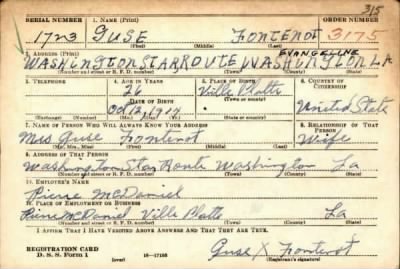 315
SERIAL NUMBER 1. NAME (Print) ORDER NUMBER
1723 GUSE FONTENOT 3175
(First) (Middle) (Last)
2. ADDRESS (Print) EVANGELINE
WASHINGTON STAR ROUTE WASHINGTON LA
(Number and street or R. F. D. number) (Town) (County) (State)
3. TELEPHONE 4. AGE IN YEARS 5. PLACE OF BIRTH 6. COUNTRY OF CITIZENSHIP
26 Ville Platte
DATE OF BIRTH (Town or county)
Oct 1914 United State
(Exchange) (Number) (Mo.) (Day) (Yr.) (State or country)
7. NAME OF PERSON WHO WILL ALWAYS KNOW YOUR ADDRESS 8. RELATIONSHIP OF THAT PERSON
Mrs Guse Fontenot Wife
(Mr., Mrs., Miss) (First) (Middle) (Last)
9. ADDRESS OF THAT PERSON
Washington Star Route Washington La
(Number and street or R. F. D. number) (Town) (County) (State)
10. EMPLOYER'S NAME
Pierre McDaniel
11. PLACE OF EMPLOYMENT OR BUSINESS
Pierre McDaniel Ville Platte La
(Number and street or R. F. D. number) (Town) (County) (State)
I AFFIRM THAT I HAVE VERIFIED ABOVE ANSWERS AND THAT THEY ARE TRUE.
REGISTRATION CARD
D. S. S. Form 1 (over) 16—17105 Guse X Fontenot
(Registrant's signature)